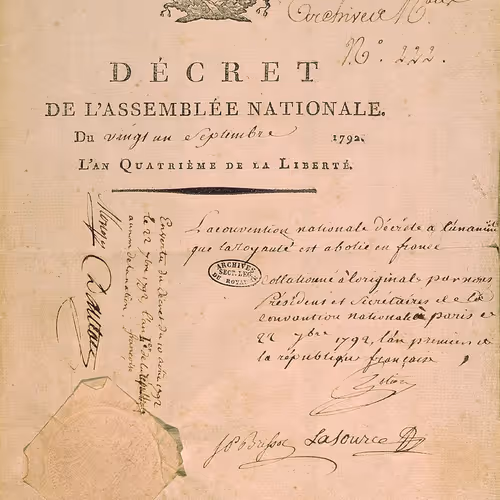 Archives N.aux
N.º 222.
DÉCRET
DE L'ASSEMBLÉE NATIONALE.
Du vingt un Septembre 1792.
L'AN QUATRIÈME DE LA LIBERTÉ.
La convention nationale décrète a l'unanimi
que la royauté est abolie en france
ARCHIVES
SECT. LEG.
DU ROYAUME
Collationné à l'original par nous
Président et Secretaires de la
convention nationale a paris ce
22 7bre 1792, l'an premier de
la république françoise
JP Brissot Lasource
Monge
Danton
En vertu du décret du 10 août 1792
le 22 7bre 1792 l'an 1er de la république
au nom de la nation françoise